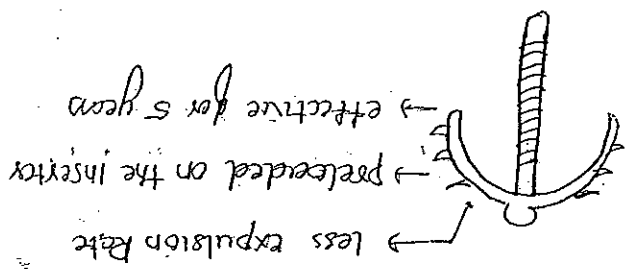 → less expulsion Rate
→ preloaded on the inserter
→ effective for 5 years